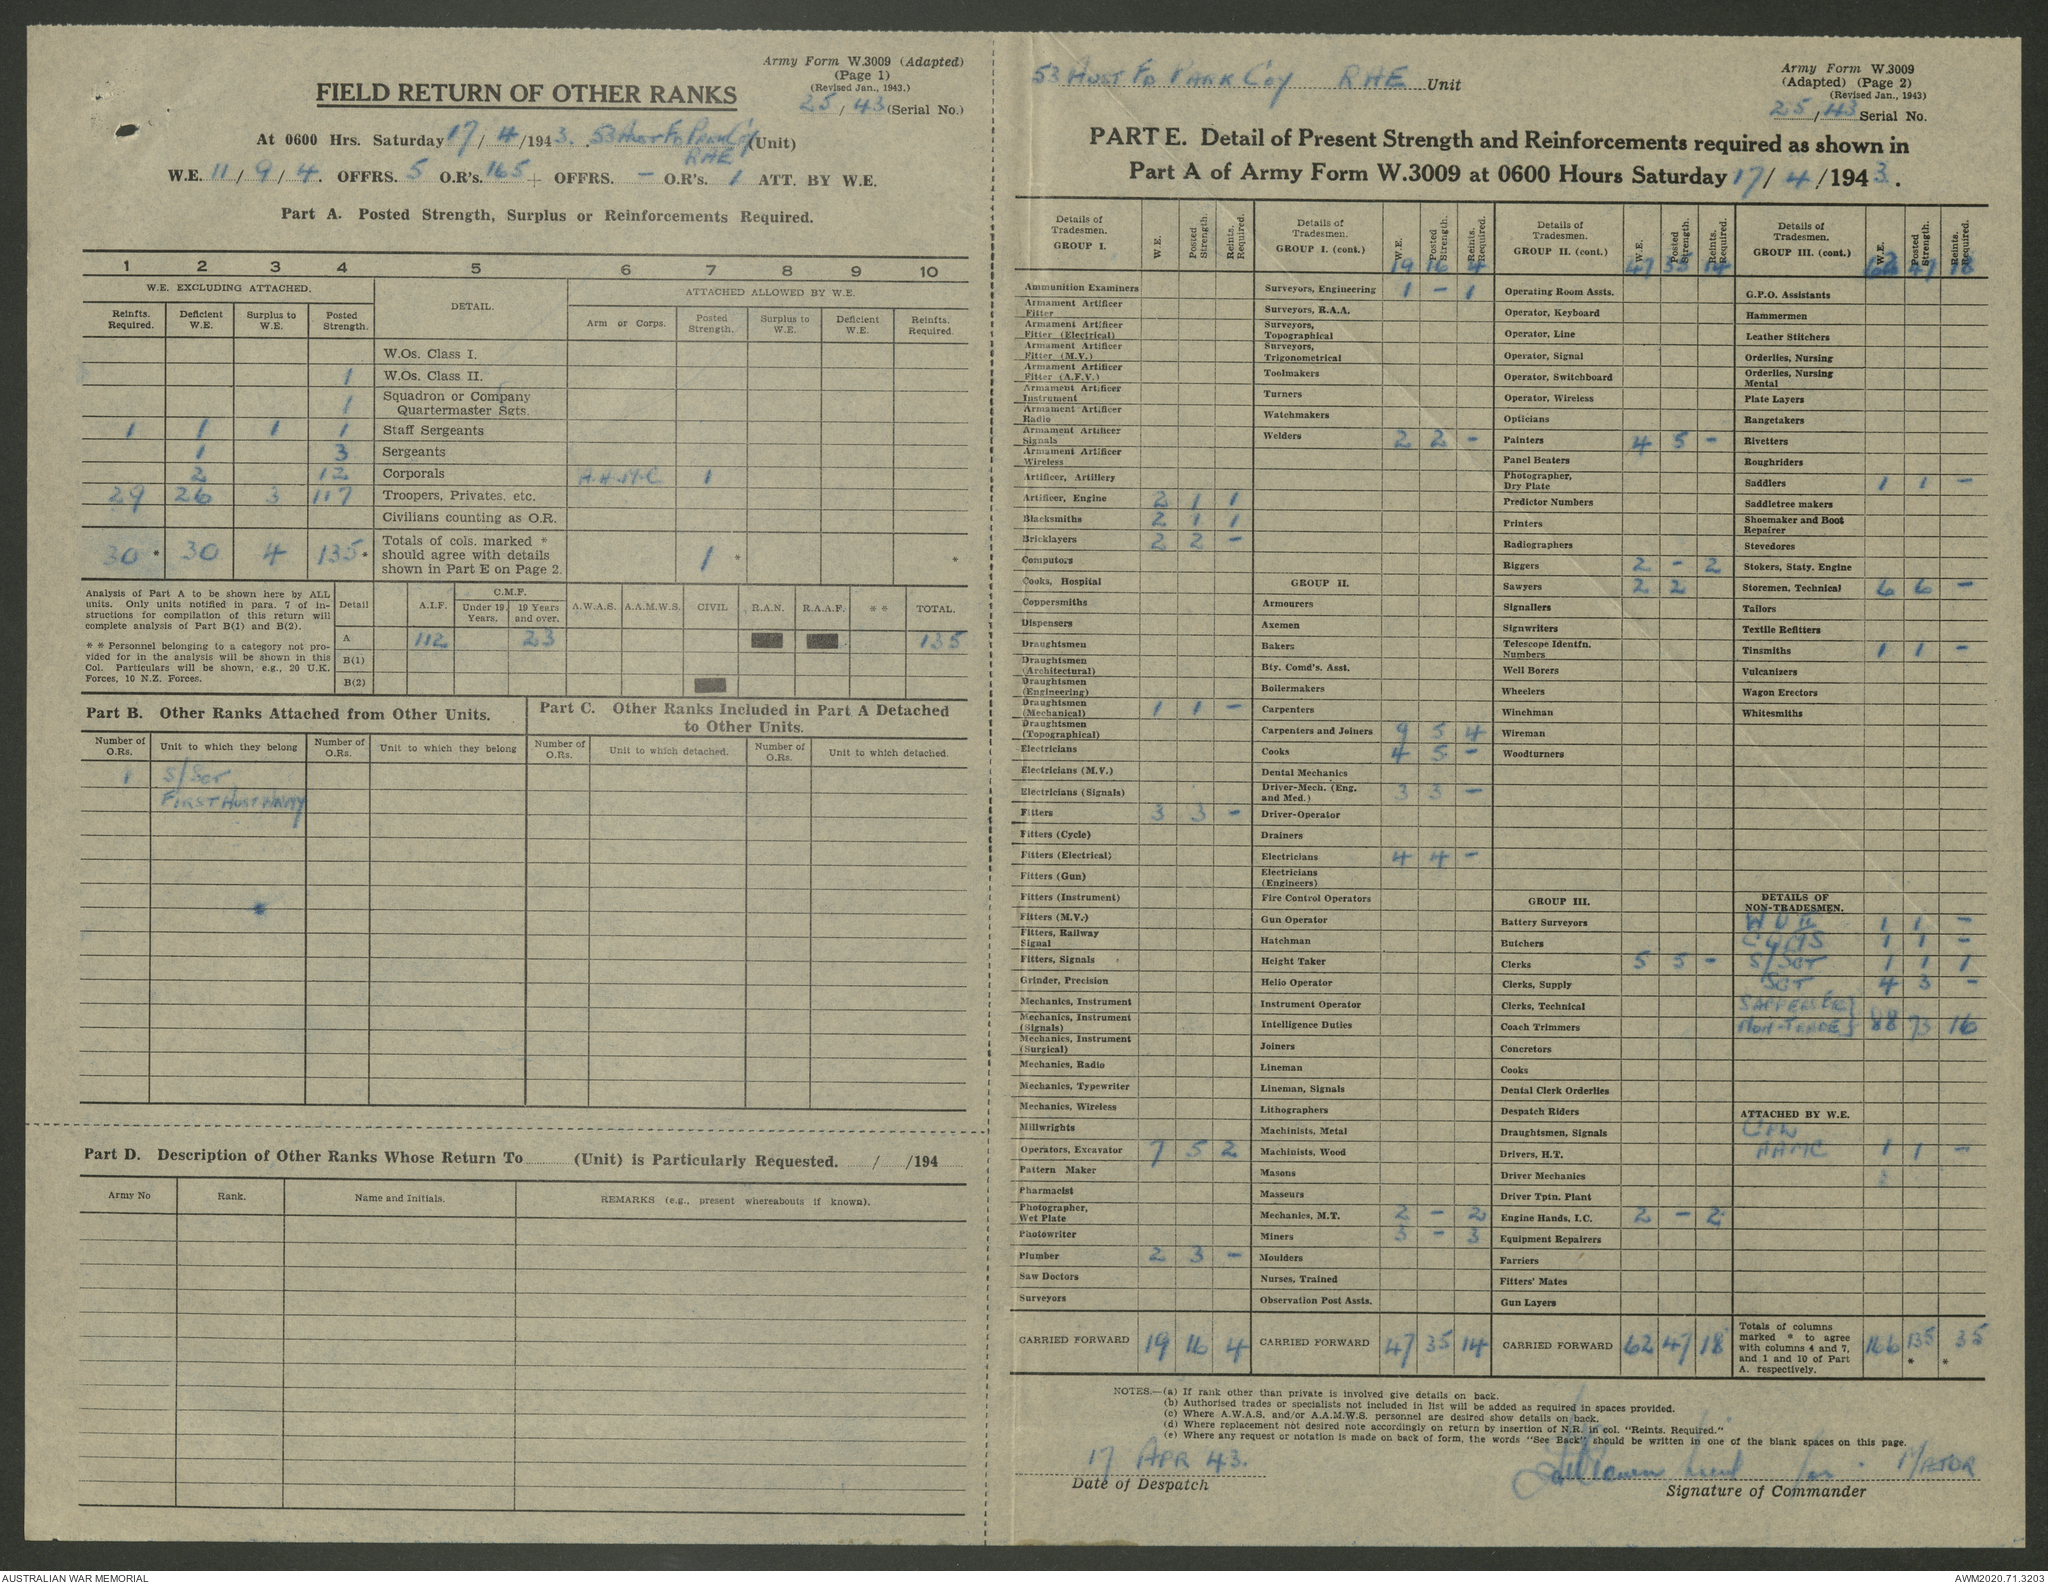 Army Form W.3009 (Adapted)
(Page 1)
(Revised Jan., 1943.)
FIELD RETURN OF OTHER RANKS
25/43 (Serial No.)
At 0600 Hrs. Saturday 17/4/1943. 53 Aust Fd Park Coy (Unit)
RAE
W.E. 11/9/4. OFFRS. 5 O.R's. 165 + OFFRS. – O.R's. 1 ATT. BY W.E.
Part A. Posted Strength, Surplus or Reinforcements Required.
1 2 3 4 5 6 7 8 9 10
W.E. EXCLUDING ATTACHED. DETAIL. ATTACHED ALLOWED BY W.E.
Reinfts. Required. Deficient W.E. Surplus to W.E. Posted Strength. Arm or Corps. Posted Strength. Surplus to W.E. Deficient W.E. Reinfts. Required.
W.Os. Class I.
1 W.Os. Class II.
1 Squadron or Company Quartermaster Sgts.
1 1 1 1 Staff Sergeants
1 3 Sergeants
2 12 Corporals A.A.M.C 1
29 26 3 117 Troopers, Privates, etc.
Civilians counting as O.R.
30 * 30 4 135 * Totals of cols. marked * should agree with details shown in Part E on Page 2. 1 * *
Analysis of Part A to be shown here by ALL units. Only units notified in para. 7 of instructions for compilation of this return will complete analysis of Part B(1) and B(2).
* * Personnel belonging to a category not provided for in the analysis will be shown in this Col. Particulars will be shown, e.g., 20 U.K. Forces, 10 N.Z. Forces.
Detail A.I.F. C.M.F. Under 19 Years. 19 Years and over. A.W.A.S. A.A.M.W.S. CIVIL R.A.N. R.A.A.F. * * TOTAL.
A 112 23 135
B(1)
B(2)
Part B. Other Ranks Attached from Other Units.
Number of O.Rs. Unit to which they belong Number of O.Rs. Unit to which they belong
1 S/Sgt
First Aust Army
Part C. Other Ranks Included in Part A Detached to Other Units.
Number of O.Rs. Unit to which detached. Number of O.Rs. Unit to which detached.
Part D. Description of Other Ranks Whose Return To (Unit) is Particularly Requested. / /194
Army No Rank. Name and Initials. REMARKS (e.g., present whereabouts if known).
53 Aust Fd Park Coy RAE Unit
Army Form W.3009
(Adapted) (Page 2)
(Revised Jan., 1943)
25/43 Serial No.
PART E. Detail of Present Strength and Reinforcements required as shown in
Part A of Army Form W.3009 at 0600 Hours Saturday 17/4/1943.
Details of Tradesmen. GROUP I. W.E. Posted Strength. Reints. Required.
Ammunition Examiners
Armament Artificer Fitter
Armament Artificer Fitter (Electrical)
Armament Artificer Fitter (M.V.)
Armament Artificer Fitter (A.F.V.)
Armament Artificer Instrument
Armament Artificer Radio
Armament Artificer Signals
Armament Artificer Wireless
Artificer, Artillery
Artificer, Engine 2 1 1
Blacksmiths 2 1 1
Bricklayers 2 2 –
Computors
Cooks, Hospital
Coppersmiths
Dispensers
Draughtsmen
Draughtsmen (Architectural)
Draughtsmen (Engineering)
Draughtsmen (Mechanical) 1 1 –
Draughtsmen (Topographical)
Electricians
Electricians (M.V.)
Electricians (Signals)
Fitters 3 3 –
Fitters (Cycle)
Fitters (Electrical)
Fitters (Gun)
Fitters (Instrument)
Fitters (M.V.)
Fitters, Railway Signal
Fitters, Signals
Grinder, Precision
Mechanics, Instrument
Mechanics, Instrument (Signals)
Mechanics, Instrument (Surgical)
Mechanics, Radio
Mechanics, Typewriter
Mechanics, Wireless
Millwrights
Operators, Excavator 7 5 2
Pattern Maker
Pharmacist
Photographer, Wet Plate
Photowriter
Plumber 2 3 –
Saw Doctors
Surveyors
CARRIED FORWARD 19 16 4
Details of Tradesmen. GROUP I. (cont.) W.E. Posted Strength. Reints. Required.
19 16 4
Surveyors, Engineering 1 – 1
Surveyors, R.A.A.
Surveyors, Topographical
Surveyors, Trigonometrical
Toolmakers
Turners
Watchmakers
Welders 2 2 –
GROUP II.
Armourers
Axemen
Bakers
Bty. Comd's. Asst.
Boilermakers
Carpenters
Carpenters and Joiners 9 5 4
Cooks 4 5 –
Dental Mechanics
Driver-Mech. (Eng. and Med.) 3 3 –
Driver-Operator
Drainers
Electricians 4 4 –
Electricians (Engineers)
Fire Control Operators
Gun Operator
Hatchman
Height Taker
Helio Operator
Instrument Operator
Intelligence Duties
Joiners
Lineman
Lineman, Signals
Lithographers
Machinists, Metal
Machinists, Wood
Masons
Masseurs
Mechanics, M.T. 2 – 2
Miners 3 – 3
Moulders
Nurses, Trained
Observation Post Assts.
CARRIED FORWARD 47 35 14
Details of Tradesmen. GROUP II. (cont.) W.E. Posted Strength. Reints. Required.
47 35 14
Operating Room Assts.
Operator, Keyboard
Operator, Line
Operator, Signal
Operator, Switchboard
Operator, Wireless
Opticians
Painters 4 5 –
Panel Beaters
Photographer, Dry Plate
Predictor Numbers
Printers
Radiographers
Riggers 2 – 2
Sawyers 2 2
Signallers
Signwriters
Telescope Identfn. Numbers
Well Borers
Wheelers
Winchman
Wireman
Woodturners
GROUP III.
Battery Surveyors
Butchers
Clerks 5 5 –
Clerks, Supply
Clerks, Technical
Coach Trimmers
Concretors
Cooks
Dental Clerk Orderlies
Despatch Riders
Draughtsmen, Signals
Drivers, H.T.
Driver Mechanics
Driver Tptn. Plant
Engine Hands, I.C. 2 – 2
Equipment Repairers
Farriers
Fitters' Mates
Gun Layers
CARRIED FORWARD 62 47 18
Details of Tradesmen. GROUP III. (cont.) W.E. Posted Strength. Reints. Required.
62 47 18
G.P.O. Assistants
Hammermen
Leather Stitchers
Orderlies, Nursing
Orderlies, Nursing Mental
Plate Layers
Rangetakers
Rivetters
Roughriders
Saddlers 1 1 –
Saddletree makers
Shoemaker and Boot Repairer
Stevedores
Stokers, Staty. Engine
Storemen, Technical 6 6 –
Tailors
Textile Refitters
Tinsmiths 1 1 –
Vulcanizers
Wagon Erectors
Whitesmiths
DETAILS OF NON-TRADESMEN.
W O II 1 1 –
CQMS 1 1 –
S/Sgt 1 1 1
Sgt 4 3 –
Sappers Etc }
Non-Trade } 88 73 16
ATTACHED BY W.E.
Cpl
AAMC 1 1 –
Totals of columns marked * to agree with columns 4 and 7, and 1 and 10 of Part A. respectively. 166 135 * * 35
NOTES.—(a) If rank other than private is involved give details on back.
(b) Authorised trades or specialists not included in list will be added as required in spaces provided.
(c) Where A.W.A.S. and/or A.A.M.W.S. personnel are desired show details on back.
(d) Where replacement not desired note accordingly on return by insertion of N.R. in col. "Reints. Required."
(e) Where any request or notation is made on back of form, the words "See Back" should be written in one of the blank spaces on this page.
17 Apr 43.
Date of Despatch
Lieut for Major
Signature of Commander
AUSTRALIAN WAR MEMORIAL
AWM2020.71.3203